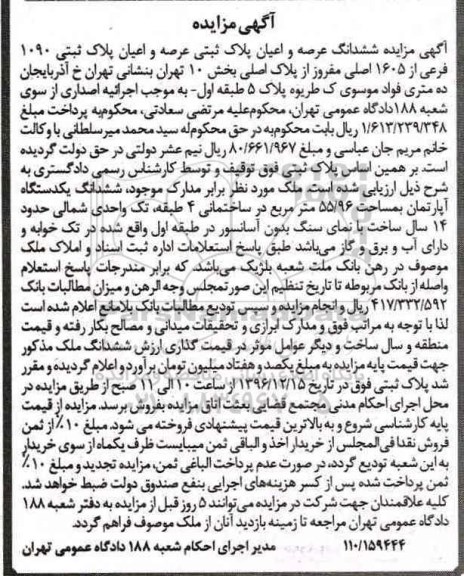 آگهی مزایده
آگهی مزایده ششدانگ عرصه و اعیان پلاک ثبتی عرصه و اعیان پلاک ثبتی ۱۰۹۰
فرعی از ۱۶۰۵ اصلی مفروز از پلاک اصلی بخش ۱۰ تهران بنشانی تهران خ آذربایجان
ده متری فواد موسوی ک طریوه پلاک ۵ طبقه اول- به موجب اجرائیه اصداری از سوی
شعبه ۱۸۸ دادگاه عمومی تهران، محکوم‌علیه مرتضی سعادتی، محکوم‌به پرداخت مبلغ
۱/۶۱۳/۲۳۹/۳۴۸ ریال بابت محکوم‌به در حق محکوم‌له سید محمد میرسلطانی با وکالت
خانم مریم جان عباسی و مبلغ ۸۰/۶۶۱/۹۶۷ ریال نیم عشر دولتی در حق دولت گردیده
است. بر همین اساس پلاک ثبتی فوق توقیف و توسط کارشناس رسمی دادگستری به
شرح ذیل ارزیابی شده است. ملک مورد نظر برابر مدارک موجود، ششدانگ یکدستگاه
آپارتمان بمساحت ۵۵/۹۶ متر مربع در ساختمانی ۴ طبقه، تک واحدی شمالی حدود
۱۴ سال ساخت با نمای سنگ بدون آسانسور در طبقه اول واقع شده در تک خوابه و
دارای آب و برق و گاز می‌باشد طبق پاسخ استعلامات اداره ثبت اسناد و املاک ملک
موصوف در رهن بانک ملت شعبه بلژیک می‌باشد، که برابر مندرجات پاسخ استعلام
واصله از بانک مربوطه تا تاریخ تنظیم این صورتمجلس وجه الرهن و میزان مطالبات بانک
۴۱۷/۳۳۲/۵۹۲ ریال و انجام مزایده و سپس تودیع مطالبات بانک بلامانع اعلام شده است
لذا با توجه به مراتب فوق و مدارک ابرازی و تحقیقات میدانی و مصالح بکار رفته و قیمت
منطقه و سال ساخت و دیگر عوامل موثر در قیمت گذاری ارزش ششدانگ ملک مذکور
جهت قیمت پایه مزایده به مبلغ یکصد و هفتاد میلیون تومان برآورد و اعلام گردیده و مقرر
شد پلاک ثبتی فوق در تاریخ ۱۳۹۶/۱۲/۱۵ از ساعت ۱۰ الی ۱۱ صبح از طریق مزایده در
محل اجرای احکام مدنی مجتمع قضایی بعثت اتاق مزایده بفروش برسد. مزایده از قیمت
پایه کارشناسی شروع و به بالاترین قیمت پیشنهادی فروخته می شود. مبلغ ۱۰٪ از ثمن
فروش نقدا فی‌المجلس از خریدار اخذ و الباقی ثمن میبایست ظرف یکماه از سوی خریدار
به این شعبه تودیع گردد، در صورت عدم پرداخت الباغی ثمن، مزایده تجدید و مبلغ ۱۰٪
ثمن پرداخت شده پس از کسر هزینه‌های اجرایی بنفع صندوق دولت ضبط خواهد شد.
کلیه علاقمندان جهت شرکت در مزایده می‌توانند ۵ روز قبل از مزایده به دفتر شعبه ۱۸۸
دادگاه عمومی تهران مراجعه تا زمینه بازدید آنان از ملک موصوف فراهم گردد.
۱۱۰/۱۵۹۴۴۴ مدیر اجرای احکام شعبه ۱۸۸ دادگاه عمومی تهران